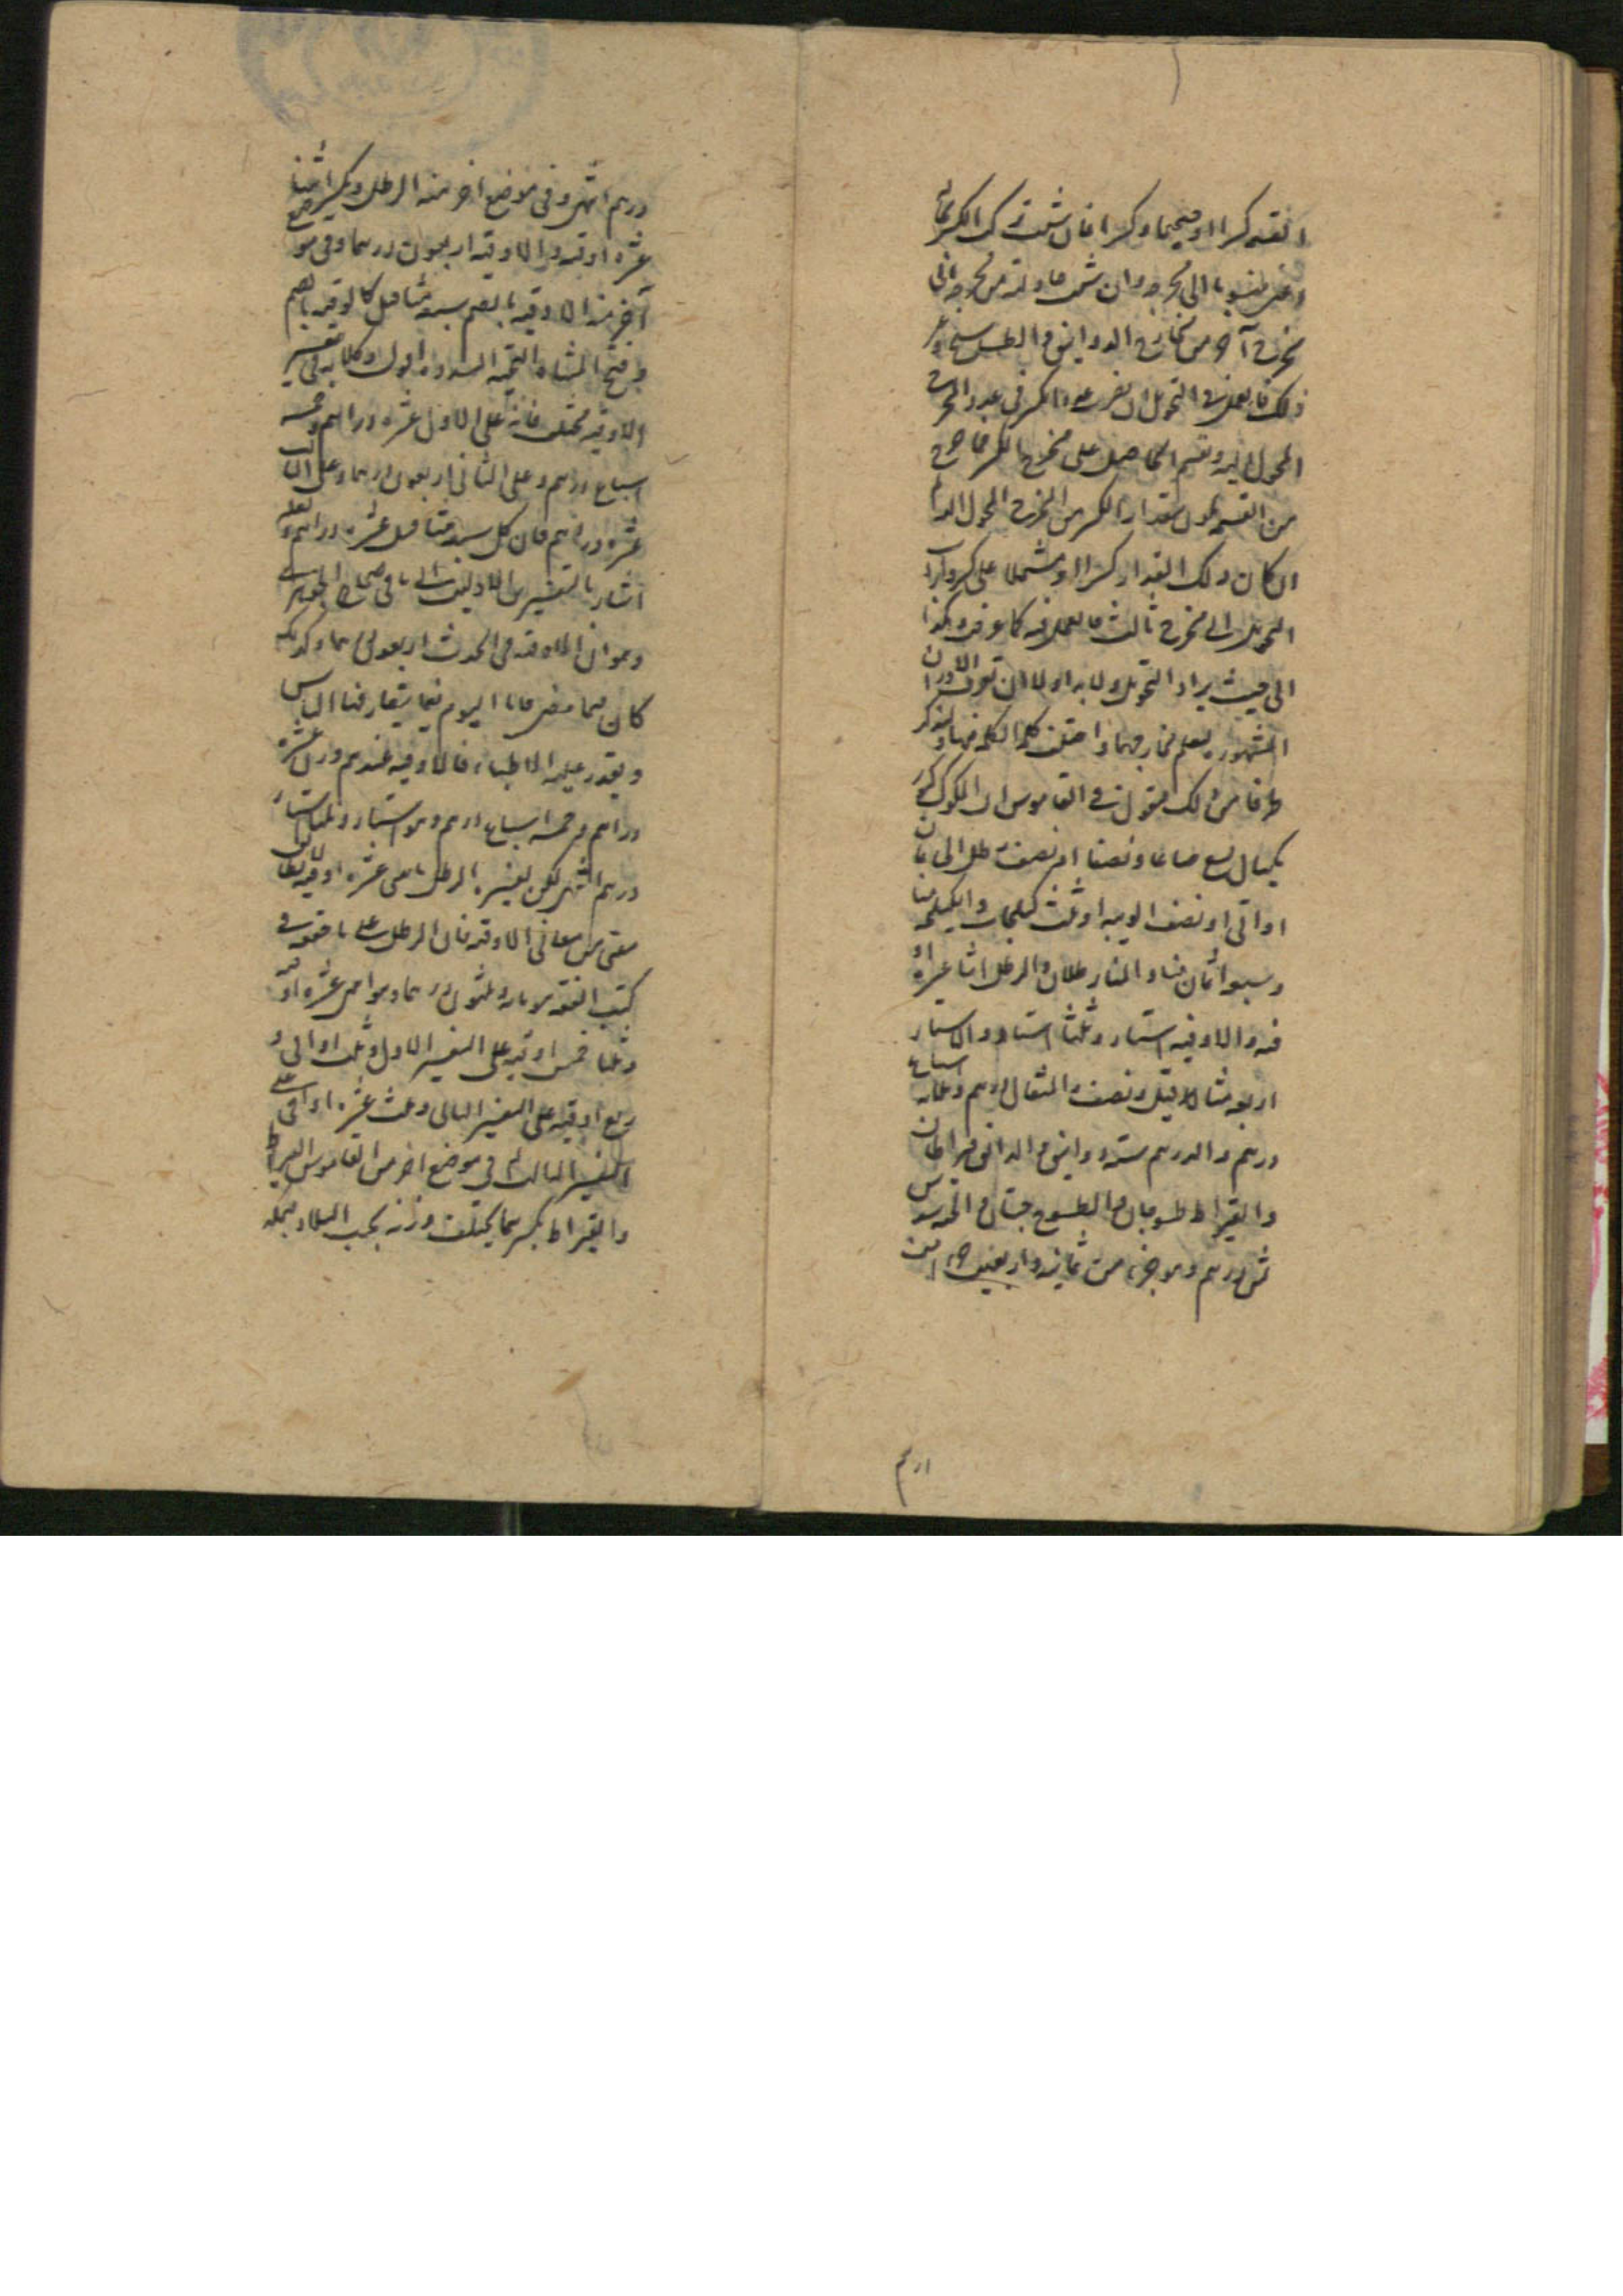 القسمة كسرا او صحيحا وكسرا فان شئت تركت الكسر بحاله
اعني منسوبا الى مخرجه وان شئت حاولته من مخرجه الى
مخرج آخر من مخارج الدوانيق والطسوج وغير
ذلك فالعمل في التحويل ان تضرب عدد الكسر في عدد المخرج
المحول اليه وتقسم الحاصل على مخرج الكسر فما خرج
من القسمة يكون مقدار الكسر من المخرج المحول اليه ثم
ان كان ذلك المقدار كسرا او مشتملا على كسر واريد
التحويل الى مخرج ثالث فالعمل فيه كما عرفت وهكذا
الى حيث يراد التحويل ولا بد اولا ان تعرف الاوزان
المشهورة ليعلم مخارجها واختلفت كلمة الكل فيها ولنذكر
طرفا من ذلك فنقول في القاموس ان المكوك كتنور
مكيال يسع صاعا ونصفا او نصف رطل الى ثمان
اواقي او نصف الويبة او ثلث كيلجات والكيلجة منا
وسبعة اثمان منا والمنا رطلان والرطل اثنا عشرة او
قية والاوقية استار وثلثا استار والاستار
اربعة مثاقيل ونصف والمثقال درهم وثلثة اسباع
درهم والدرهم ستة دوانيق والدانق قيراطان
والقيراط طسوجان والطسوج حبتان والحبة سدس
ثمن درهم وهو جزء من ثمانية واربعين جزءا من
درهم
درهم انتهى وفي موضع اخر منه الرطل ويكسر اثنتا
عشرة اوقية والاوقية اربعون درهما وفي موضع
آخر منه الاوقية بالضم سبعة مثاقيل كالوقية بالضم
وفتح المثناة التحتية المشددة اول وكلامه في تفسير
الاوقية مختلف فانه على الاول عشرة دراهم وخمسة
اسباع درهم وعلى الثاني اربعون درهما وعلى الثالث
عشرة دراهم فان كل سبعة مثاقيل عشرة دراهم ولعله
اشار بالتفسيرين الاولين الى ما في صحاح الجوهري
وهو ان الاوقية في الحديث اربعون درهما وكذلك
كان فيما مضى فاما اليوم فيما يتعارفها الناس
ويقدر عليه الاطباء فالاوقية عندهم وزن عشرة
دراهم وخمسة اسباع درهم وهو استار وثلثا استار
درهم انتهى لكن تفسيره الرطل باثني عشرة اوقية لا يطابق
معنى من معاني الاوقية فان الرطل على ما حققوه في
كتب الفقه مائة وثلثون درهما وهو اثنى عشرة اوقية
وثلثا خمس اوقية على التفسير الاول وثلث اواقي و
ربع اوقية على التفسير الثاني وثلث عشرة اواقي على
التفسير الثالث ثم في موضع اخر من القاموس القيراط
والقيراط بكسرهما يختلف وزنه بحسب البلاد فبمكة